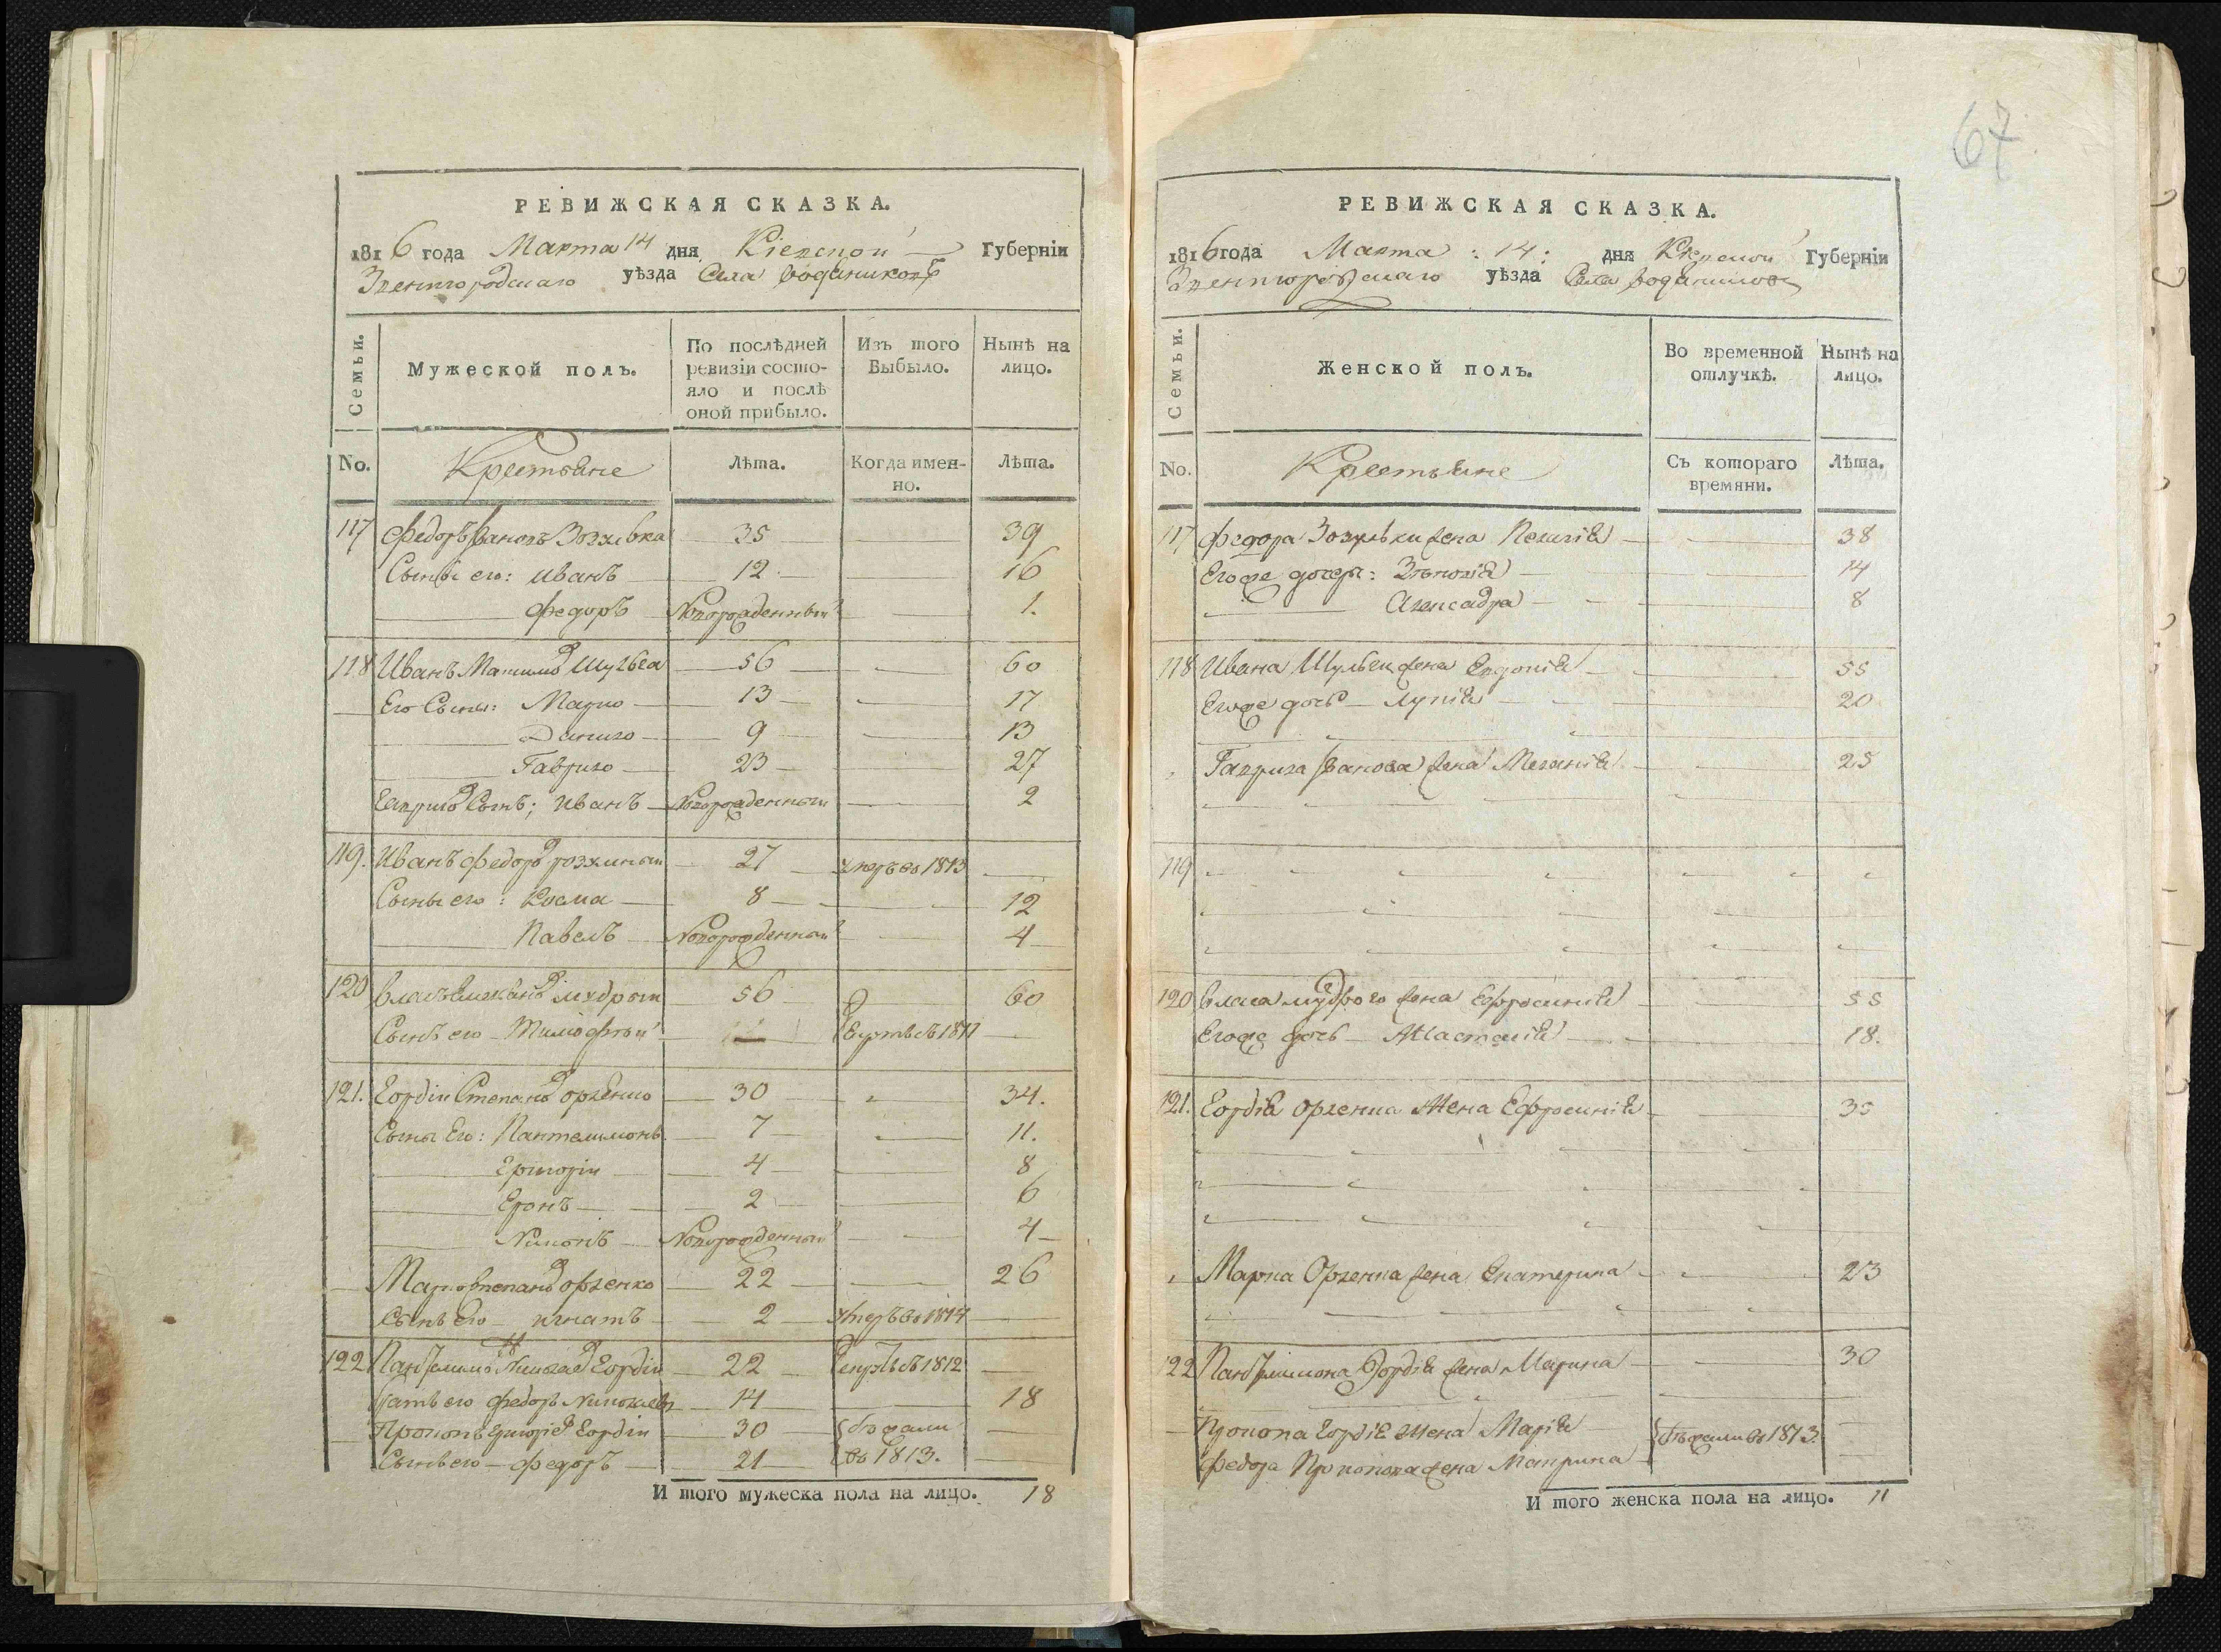 67
РЕВИЖСКАЯ СКАЗКА.
1816 года Марта 14 дня Кіевской Губерніи
Звенигородскаго уѣзда Села водяниковъ
Семьи.
Мужеской полъ.
По послѣдней ревизіи состо-
яло и послѣ оной прибыло.
Изъ того Выбыло.
Нынѣ на лицо.
No. Крестьяне Лѣта. Когда имен-
но. Лѣта.
117 Федоръ Ивановъ 35 39
Сыны его: Иванъ 12 16
Федоръ Новорожденный 1.
118 Иванъ Максимовъ Шульга 56 60
Его Сыны: Марко 13 17
Данило 9 13
Гаврило 23 27
Гаврилы Сынъ; Иванъ Новорожденный 2
119. Иванъ Федоровъ 27 умеръ во 1813
Сыны его: Косма 8 12
Павелъ Новорожденный 4
120 власъ мудрый 56 60
Сынъ его Тимофтей 1811
121. Гордій Степановъ 30 34.
Сыны Его: Пантелимонъ 7 11.
Григорій 4 8
2 6
Новорожденный 4
Марко Степановъ 22 26
Сынъ Его игнатъ 2 умеръ во 1814
122 Пантелимонъ Николаевъ Гордій 22 1812
Братъ его Федоръ Николаевъ 14 18
Прокопъ Григоріевъ Гордій 30 бѣжали
Сынъ его Федоръ 21 во 1813.
И того мужеска пола на лицо. 18
РЕВИЖСКАЯ СКАЗКА.
1816 года Марта: 14: дня Кіевской Губерніи
Звенигородскаго уѣзда Села водяниковъ
Семьи.
Женской полъ.
Во временной отлучкѣ.
Нынѣ на лицо.
No. Крестьяне Съ котораго
времяни. Лѣта.
117 Федора жена Пелагія 38
Егоже дочери: Зѣновія 14
Алексадра 8
118 Ивана Шульги жена Евдокія 55
Егоже дочь Лукія 20
Гаврила Иванова жена Меланія 25
119
120 власа мудрого жена Ефросинія 55
Егоже дочь Настасія 18.
121. Гордія жена Ефросинія 35
Марка жена Екатерина 23
122 Пантелимона Гордія жена Марина 30
Прокопа Гордія жена Марія бѣжали во 1813.
Федора Прокопова жена Матрина
И того женска пола на лицо. 11